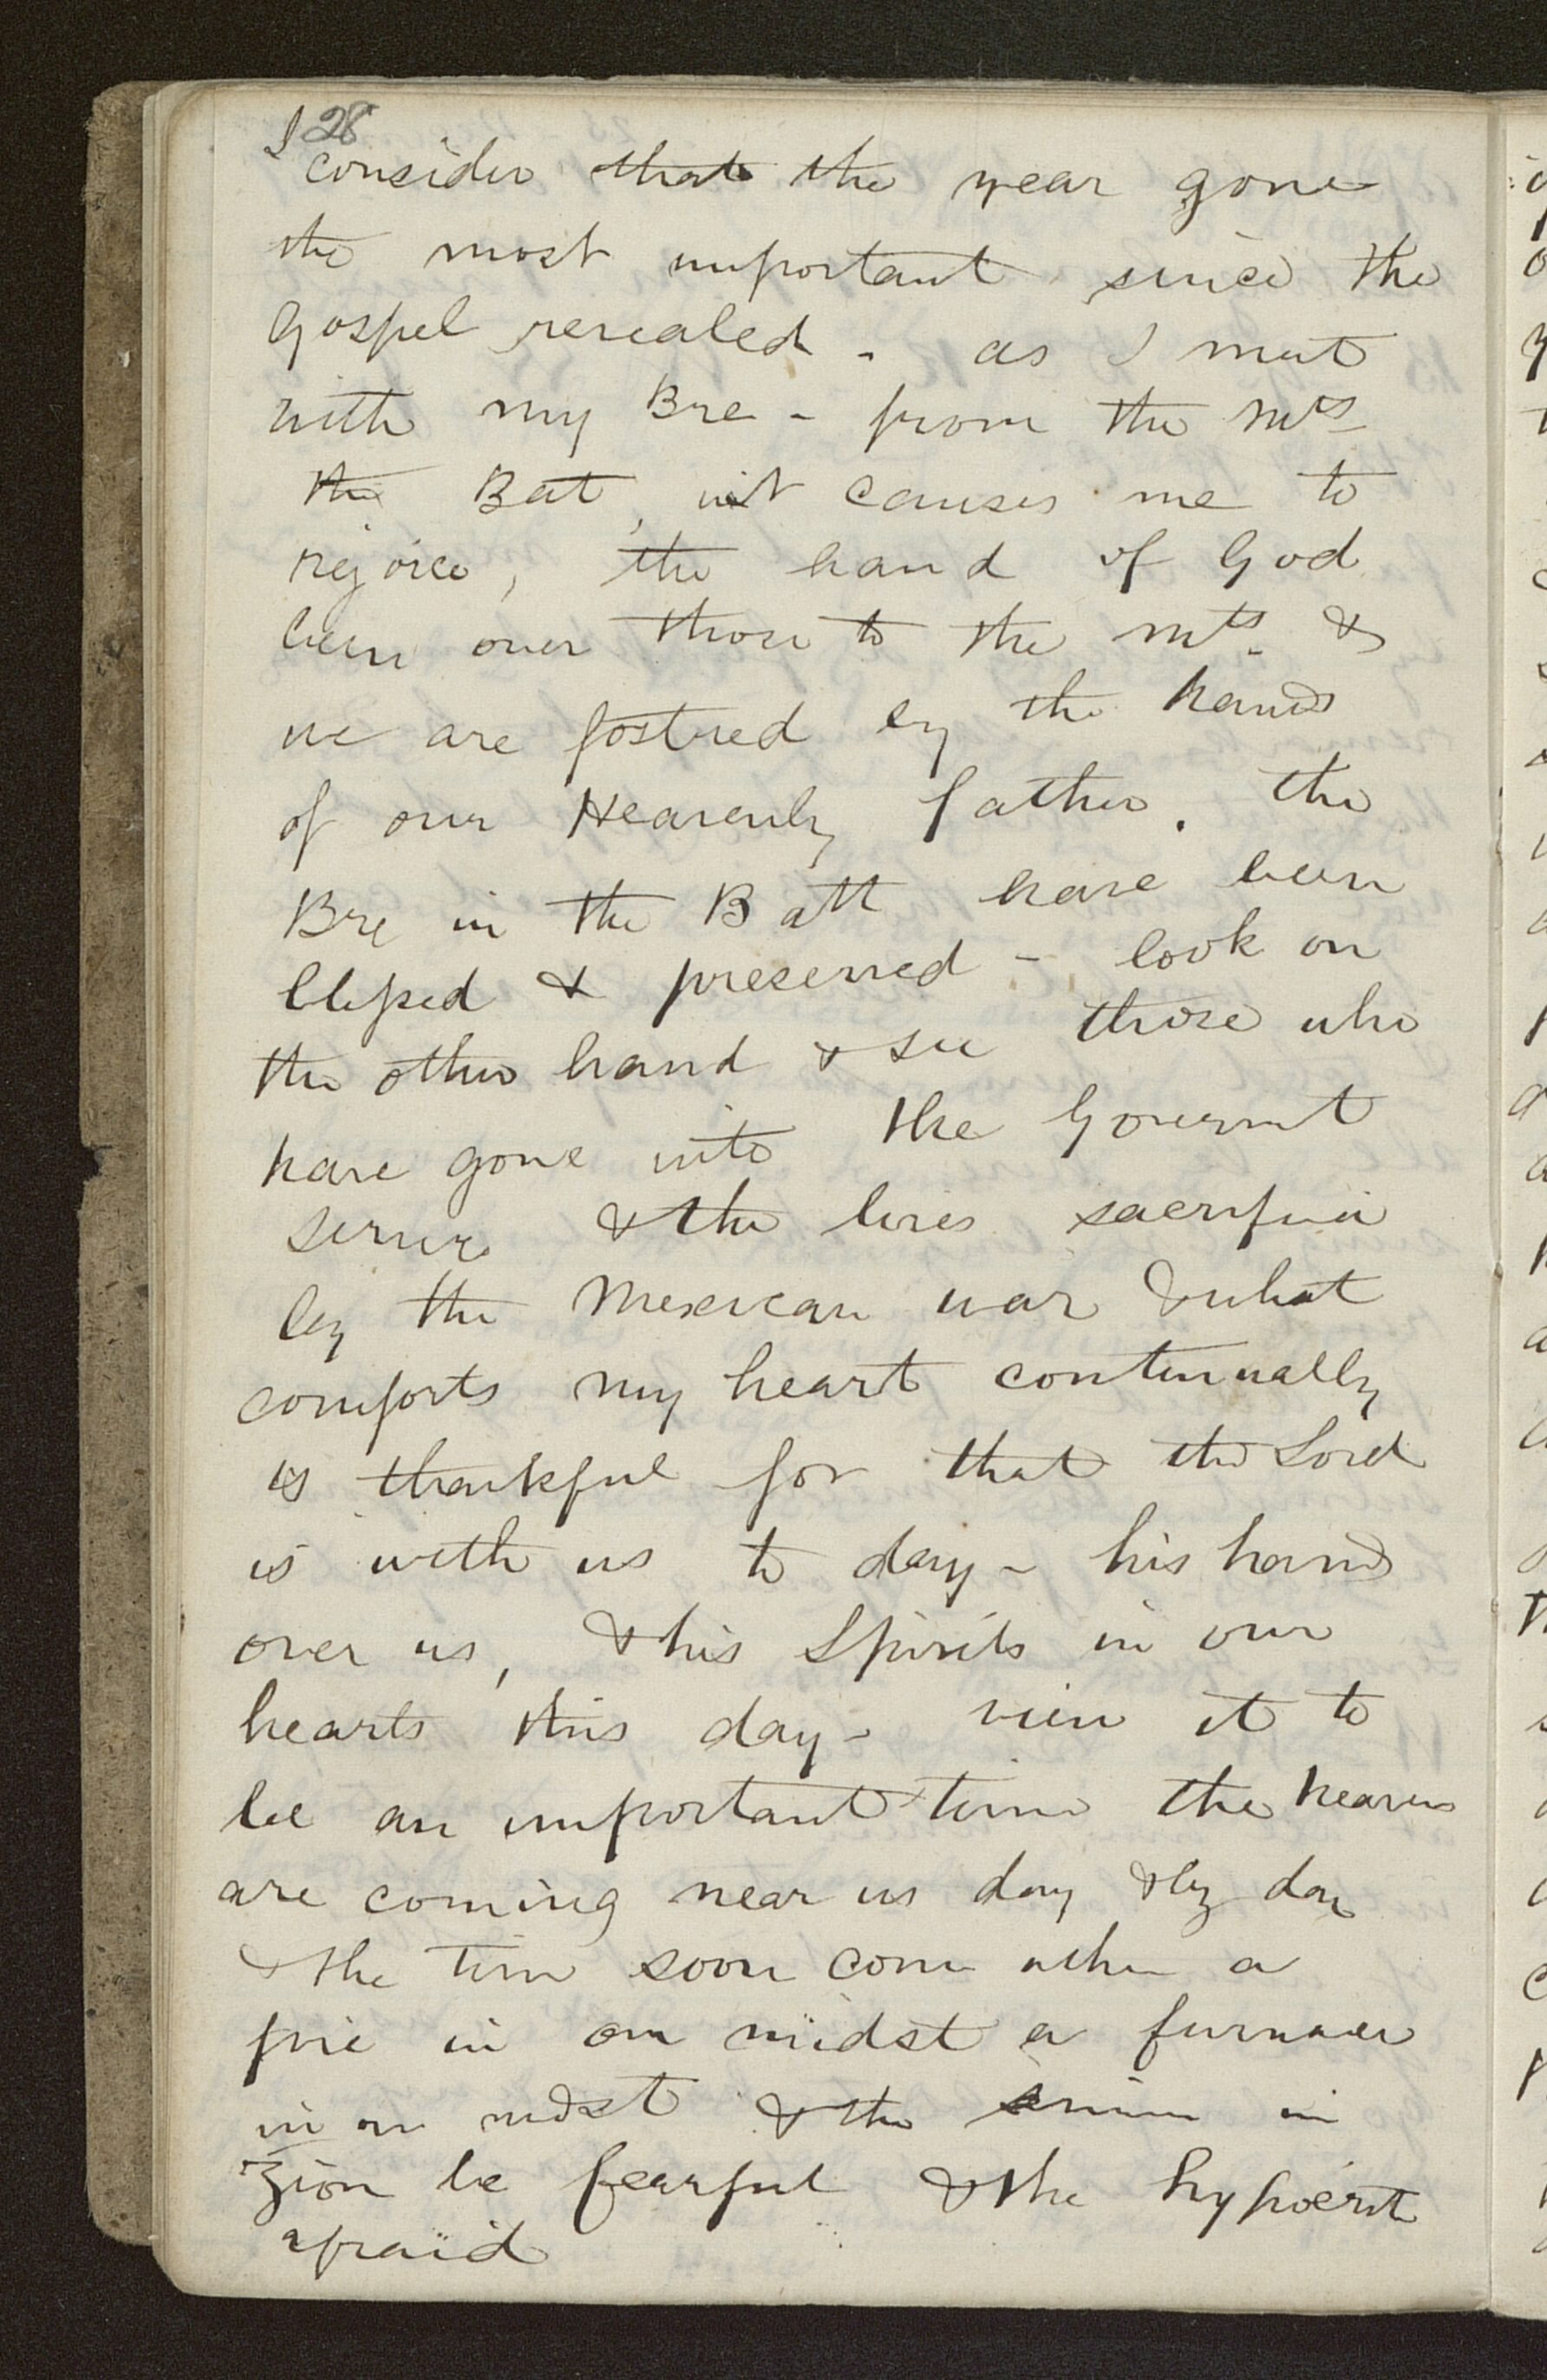 28
I consider that the year gone
the most important since the
Gospel revealed - as I meet
with my Bre - from the Mts
the Bat, it causes me to
rejoice, the hand of God
been over those to the mts. &
we are fostred by the hands
of our Heavenly father. the
Bre in the Batt have been
blessed & preserved - look on
the other hand & see those who
have gone into the Governmt
service & the lives sacrificed
by the Mexican war & what
comforts my heart continually
is thankful for that the Lord
is with us to day - his hand
over us, & his Spirits in our
hearts this day - view it to
be an important time the heavens
are coming near us day & by day
& the time soon come when a
fire in our midst a furnace
in our midst & the in
Zion be fearful & the hypocrit
afraid